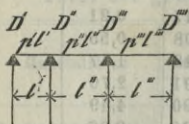 D' D'' D''' D''''
p'l' p''l'' p'''l'''
l' l'' l'''